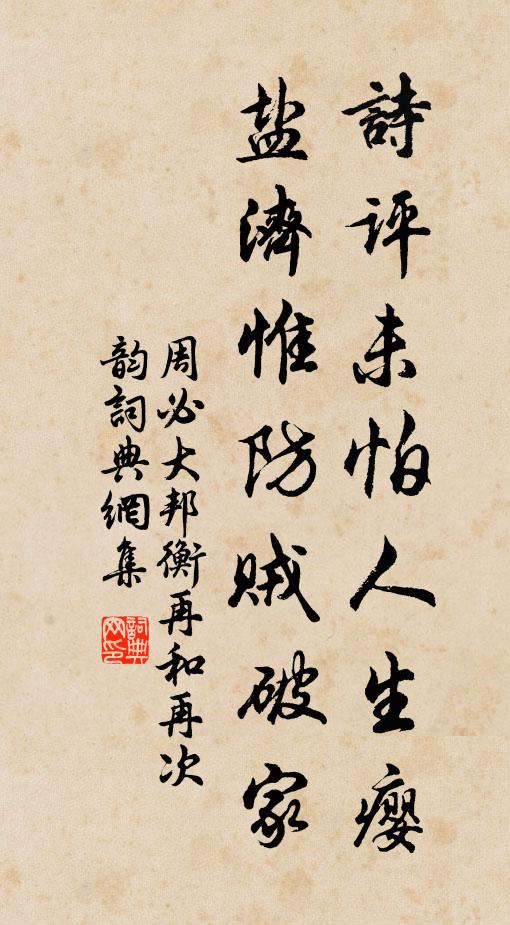 詩評未怕人生癭
盐濟惟防賊破家
周必大邦衡再和再次
韵詞典網集
詞典网印